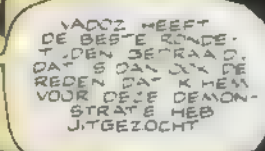 VADOZ HEEFT
DE BESTE RONDE-
TIJDEN GEDRAAID,
DAT IS DAN OOK DE
REDEN DAT IK HEM
VOOR DEZE DEMON-
STRATIE HEB
UITGEZOCHT